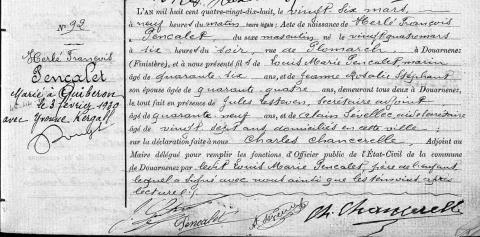 N° 92
Herlé François
Pencalet
Marié à Quiberon
le 3 février 1920
avec Yvonne
L'AN mil huit cent quatre-vingt-dix-huit, le vingt six mars
à neuf heures du matin, Acte de naissance de Herlé François
Pencalet, du sexe masculin, né le vingt quatre mars
à six heures du soir, rue de Plomarch, à Douarnenez
(Finistère), et à nous présenté fils de Louis Marie Pencalet, marin
âgé de quarante six ans, et de Jeanne Rosalie Stéphant
son épouse âgée de quarante quatre ans, demeurant tous deux à Douarnenez,
le tout fait en présence de Jules Lesteven, secrétaire adjoint
âgé de quarante neuf ans, et Alain Sévellec
âgé de vingt sept ans domiciliés en cette ville ;
sur la déclaration faite à nous Charles Chancerelle, Adjoint au
Maire délégué pour remplir les fonctions d'Officier public de l'État-Civil de la commune
de Douarnenez par ledit Louis Marie Pencalet, père de l'enfant
lequel a signé avec nous ainsi que les témoins après
lecture.
Pencalet
Ch. Chancerelle